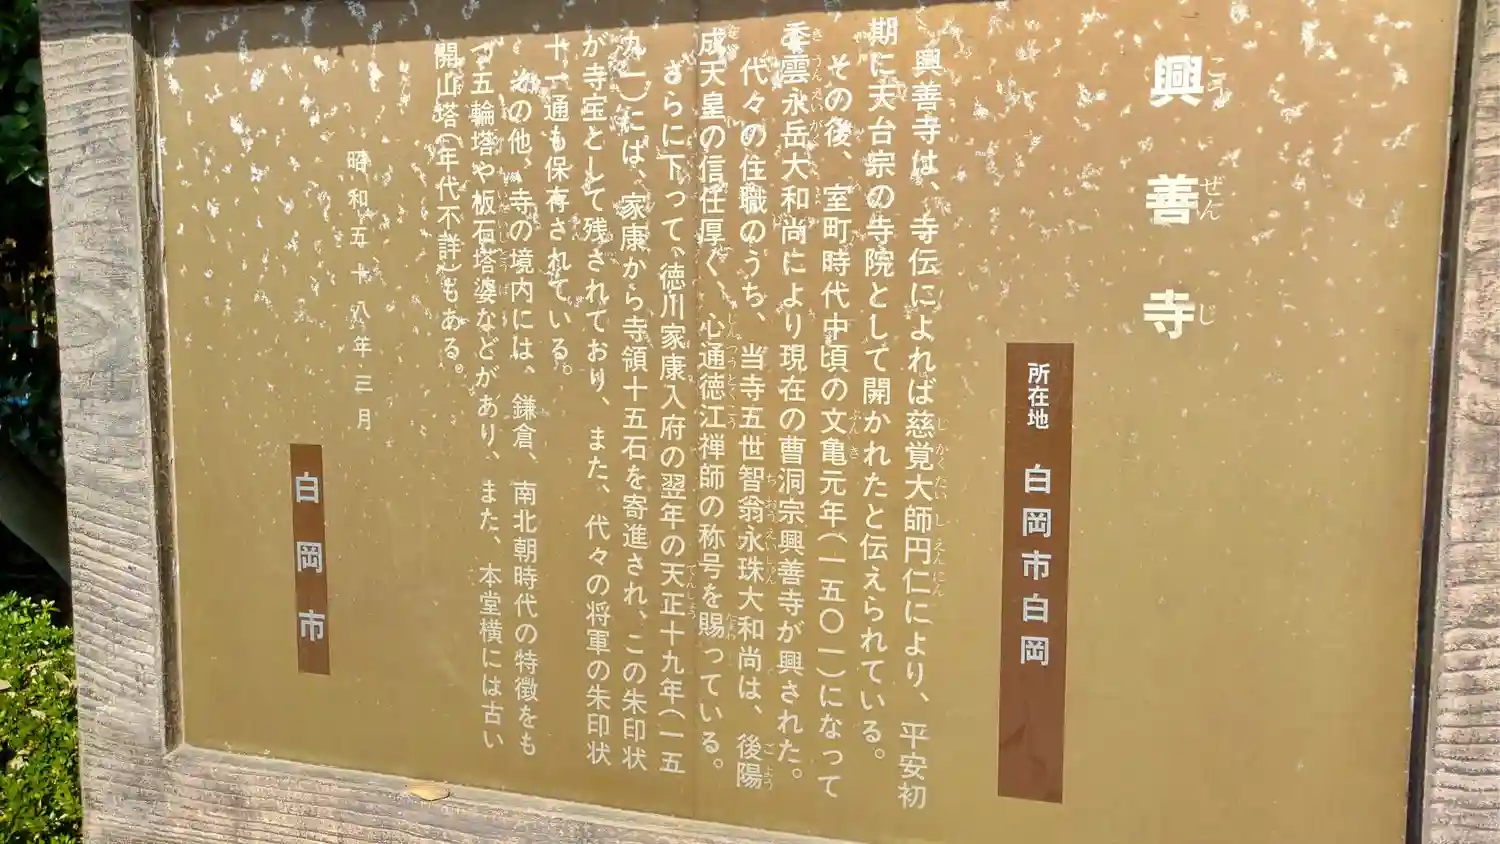 興善寺
所在地 白岡市白岡
興善寺は、寺伝によれば慈覚大師円仁により、平安初
期に天台宗の寺院として開かれたと伝えられている。
その後、室町時代中頃の文亀元年(一五〇一)になって
季雲永岳大和尚により現在の曹洞宗興善寺が興された。
代々の住職のうち、当寺五世智翁永珠大和尚は、後陽
成天皇の信任厚く、心通徳江禅師の称号を賜っている。
さらに下って、徳川家康入府の翌年の天正十九年(一五
九一)には、家康から寺領十五石を寄進され、この朱印状
が寺宝として残されており、また、代々の将軍の朱印状
十一通も保存されている。
その他、寺の境内には、鎌倉、南北朝時代の特徴をも
つ五輪塔や板石塔婆などがあり、また、本堂横には古い
開山塔(年代不詳)もある。
昭和五十八年三月
白岡市